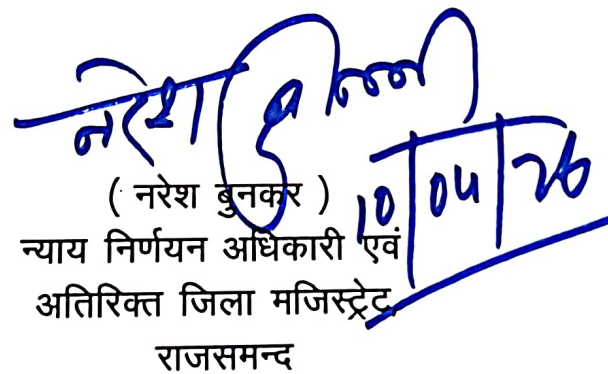 नरेश
10/04/26
( नरेश बुनकर )
न्याय निर्णयन अधिकारी एवं
अतिरिक्त जिला मजिस्ट्रेट,
राजसमन्द